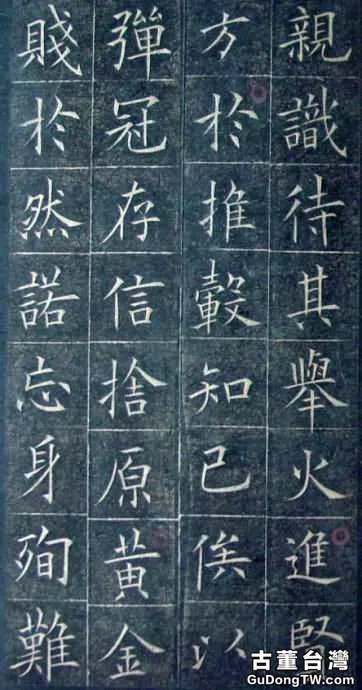 親識待其舉火進賢
方於推轂知己俟以
彈冠存信捨原黃金
賤於然諾忘身殉難
古董台灣
GuDongTW.com